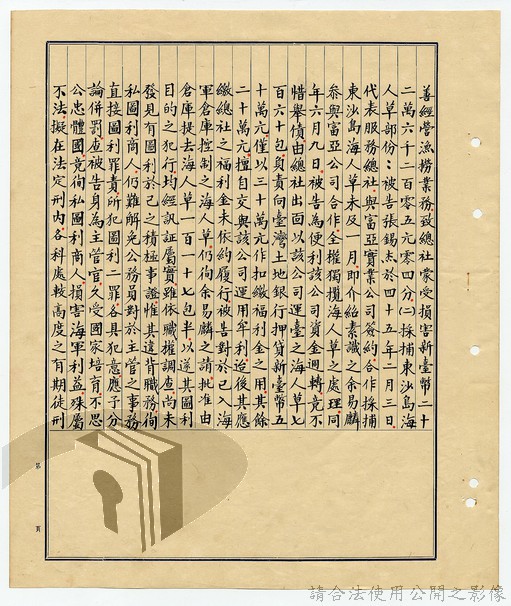 善經營漁撈業務致總社蒙受損害新臺幣二十
二萬六千二百零五元零四分㈡採捕東沙島海
人草部份：被告張錫杰於四十五年二月三日
代表服務總社與富亞實業公司簽約合作採捕
東沙島海人草未及一月即介紹素識之余易麟
參與富亞公司合作全權獨攬海人草之處理同
年六月九日被告為便利該公司資金週轉竟不
惜舉債由總社出面以該公司運臺之海人草七
百六十包負責向臺灣土地銀行押貸新臺幣五
十萬元僅以三十萬元作扣繳福利金之用其餘
二十萬元擅自交與該公司運用牟利迨後其應
繳總社之福利金未依約履行被告對於已入海
軍倉庫控制之海人草仍徇余易麟之請批准由
倉庫提去海人草一百一十七包半以遂其圖利
目的之犯行均經訊証屬實雖依職權調查尚未
發見有圖利於己之積極事證惟其違背職務徇
私圖利商人仍難解免公務員對於主管之事務
直接圖利罪責所犯圖利二罪各具犯意應予分
論併罰查被告身為主管官久受國家培育不思
公忠體國竟徇私圖利商人損害海軍利益殊屬
不法擬在法定刑內各科處較高度之有期徒刑
第
頁
請合法使用公開之影像